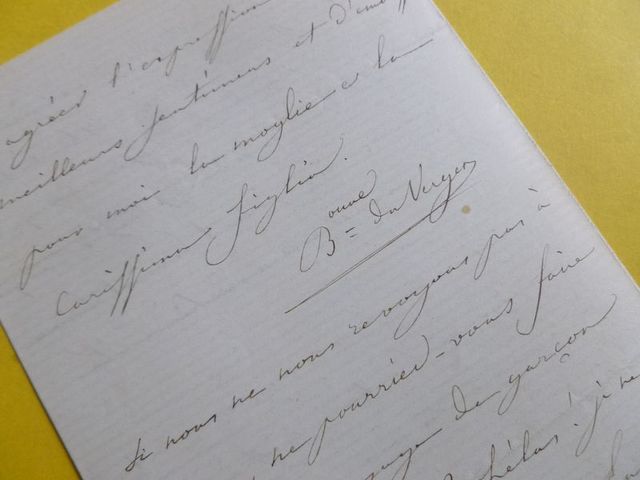 agréer l'expression
meilleurs sentimens et d'embr
pour moi la moglie e la
carissima figlia.
Bonne du Verger
si nous ne nous revoyons pas à
ne pourriéz-vous faire
de garçon
hélas! je ne